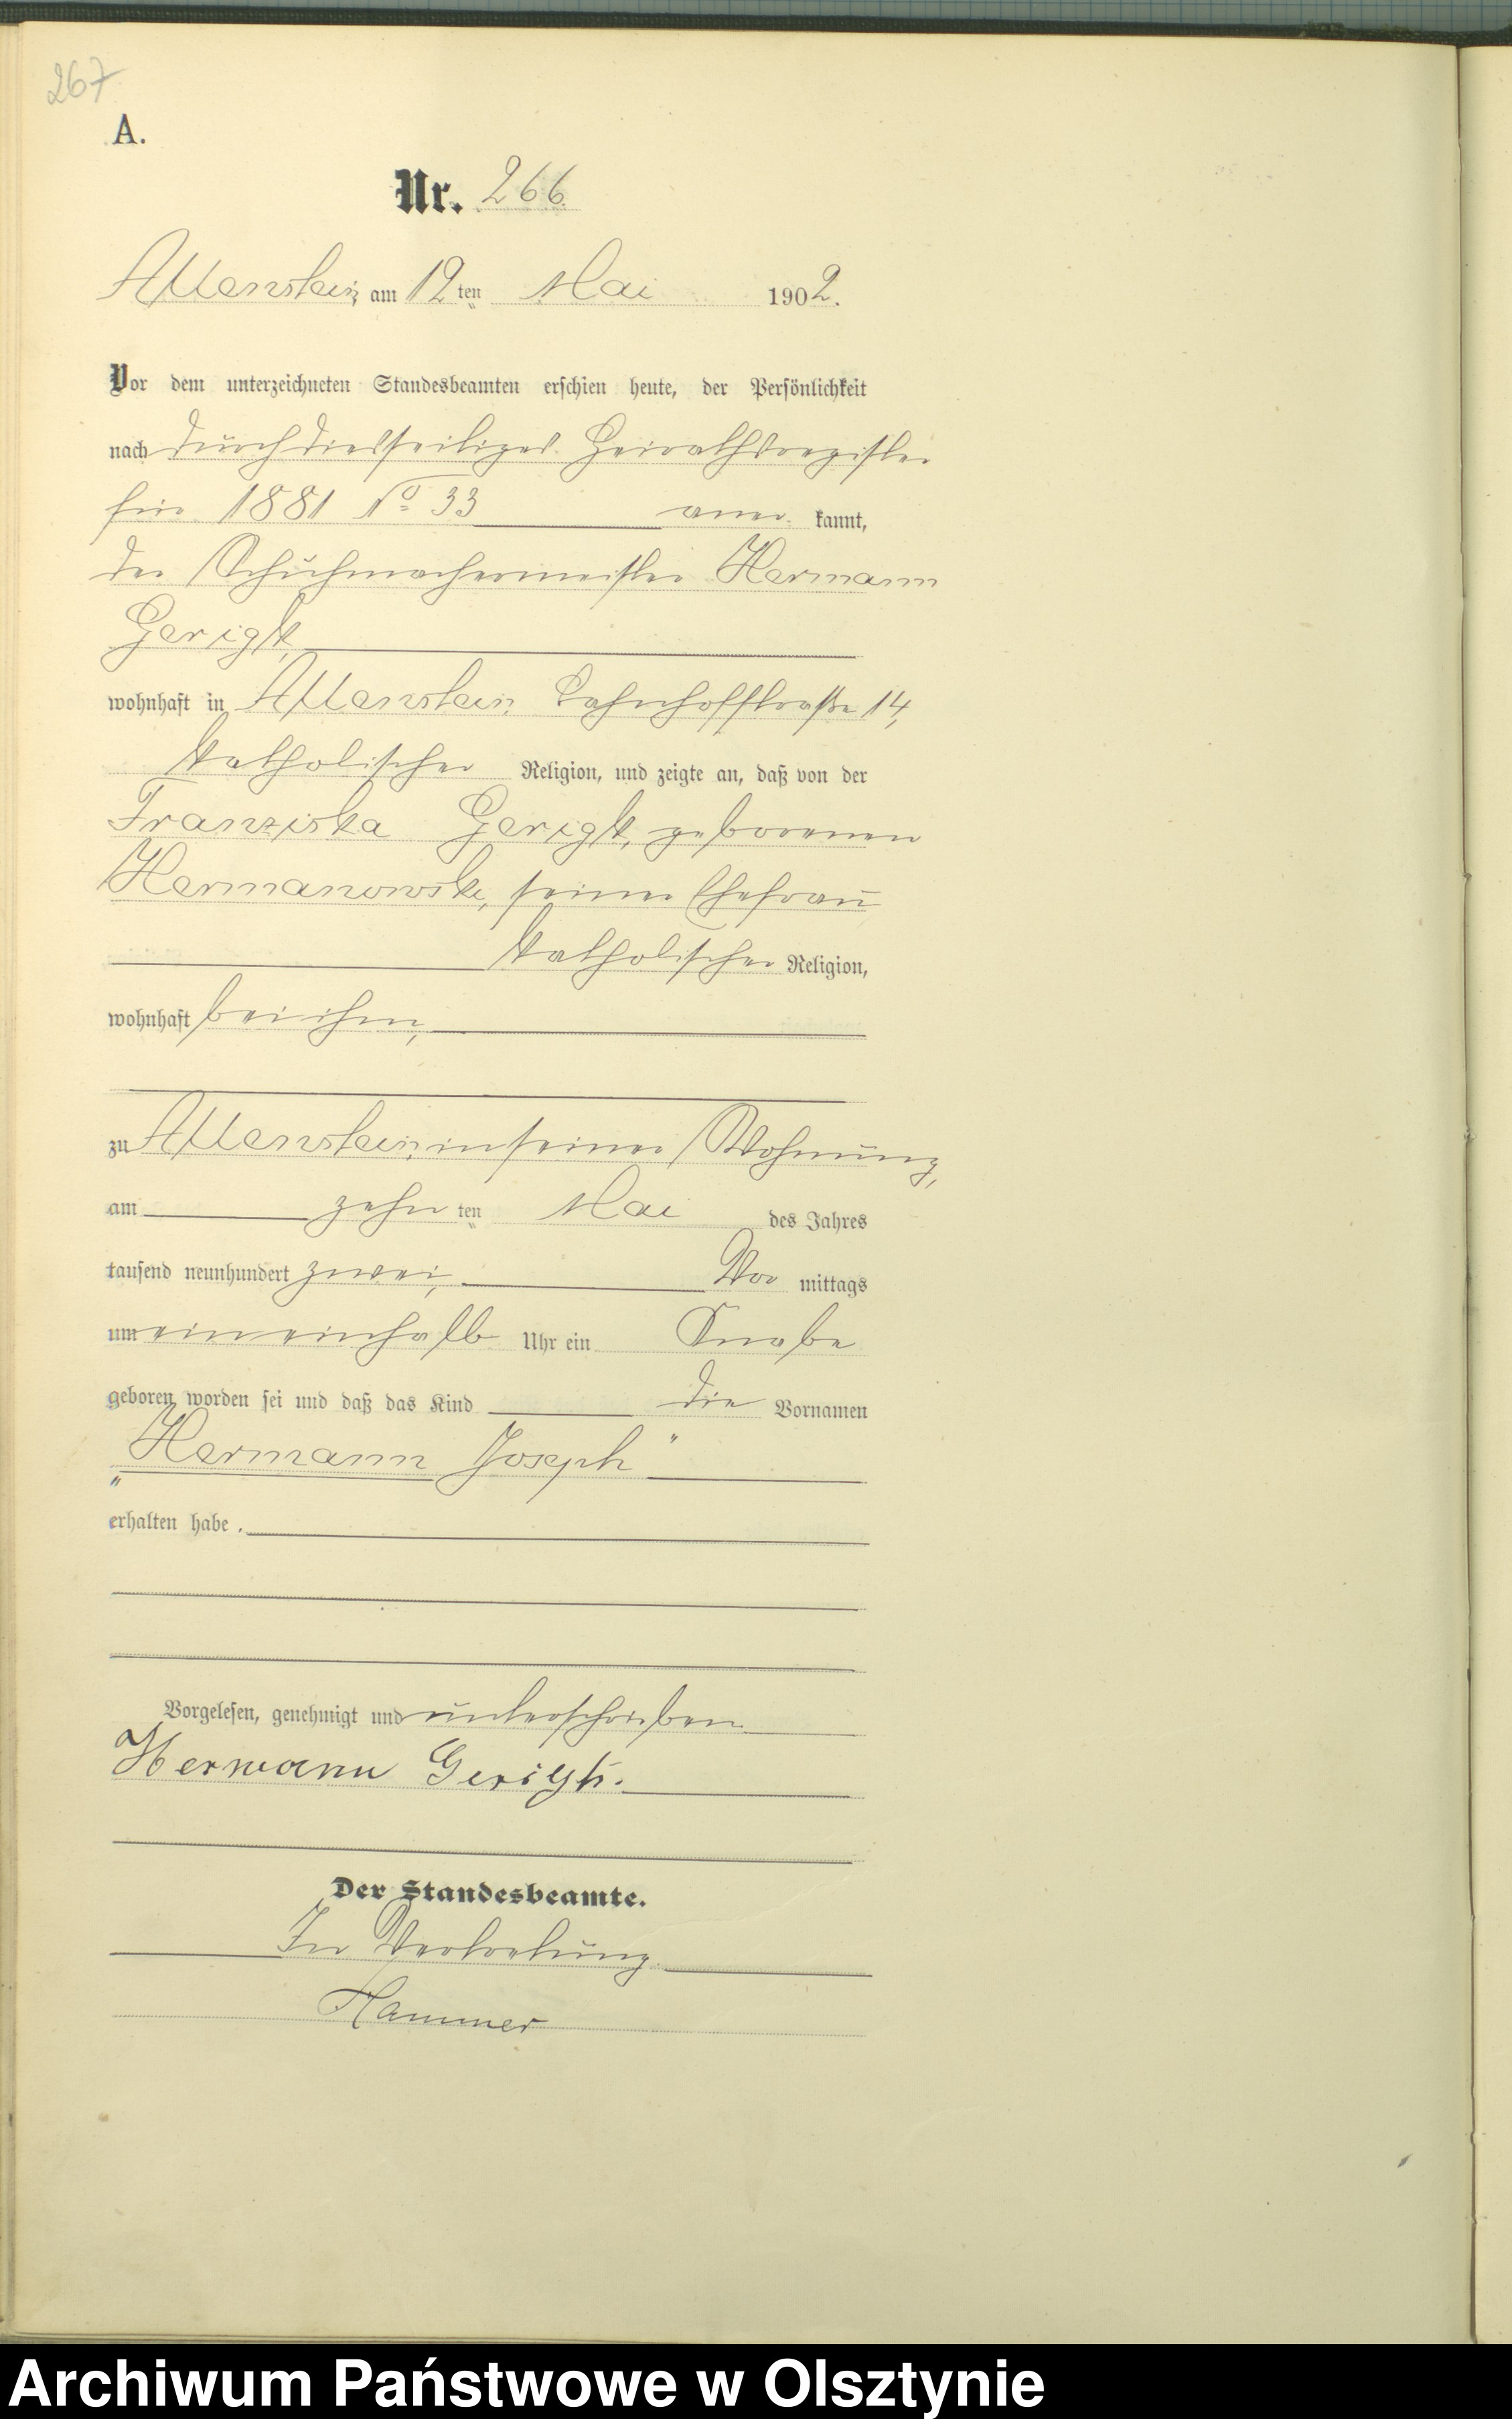 267
A.
Nr. 266.
Allenstein, am 12ten Mai 1902.
Vor dem unterzeichneten Standesbeamten erschien heute, der Persönlichkeit
nach durch diesseitiges Heirathsregister
für 1881 No 33 aner kannt,
der Schuhmachermeister Hermann
Gerigk,
wohnhaft in Allenstein, Bahnhofstraße 14,
katholischer Religion, und zeigte an, daß von der
Franziska Gerigk, geborenen
Hermanowski, seiner Ehefrau
katholischer Religion,
wohnhaft bei ihm,
zu Allenstein in seiner Wohnung,
am zehn ten Mai des Jahres
tausend neunhundert zwei, Vor mittags
um ein einhalb Uhr ein Knabe
geboren worden sei und daß das Kind die Vornamen
„Hermann Joseph"
erhalten habe.
Vorgelesen, genehmigt und unterschrieben
Hermann Gerigk.
Der Standesbeamte.
In Vertretung.
Hammer
Archiwum Państwowe w Olsztynie